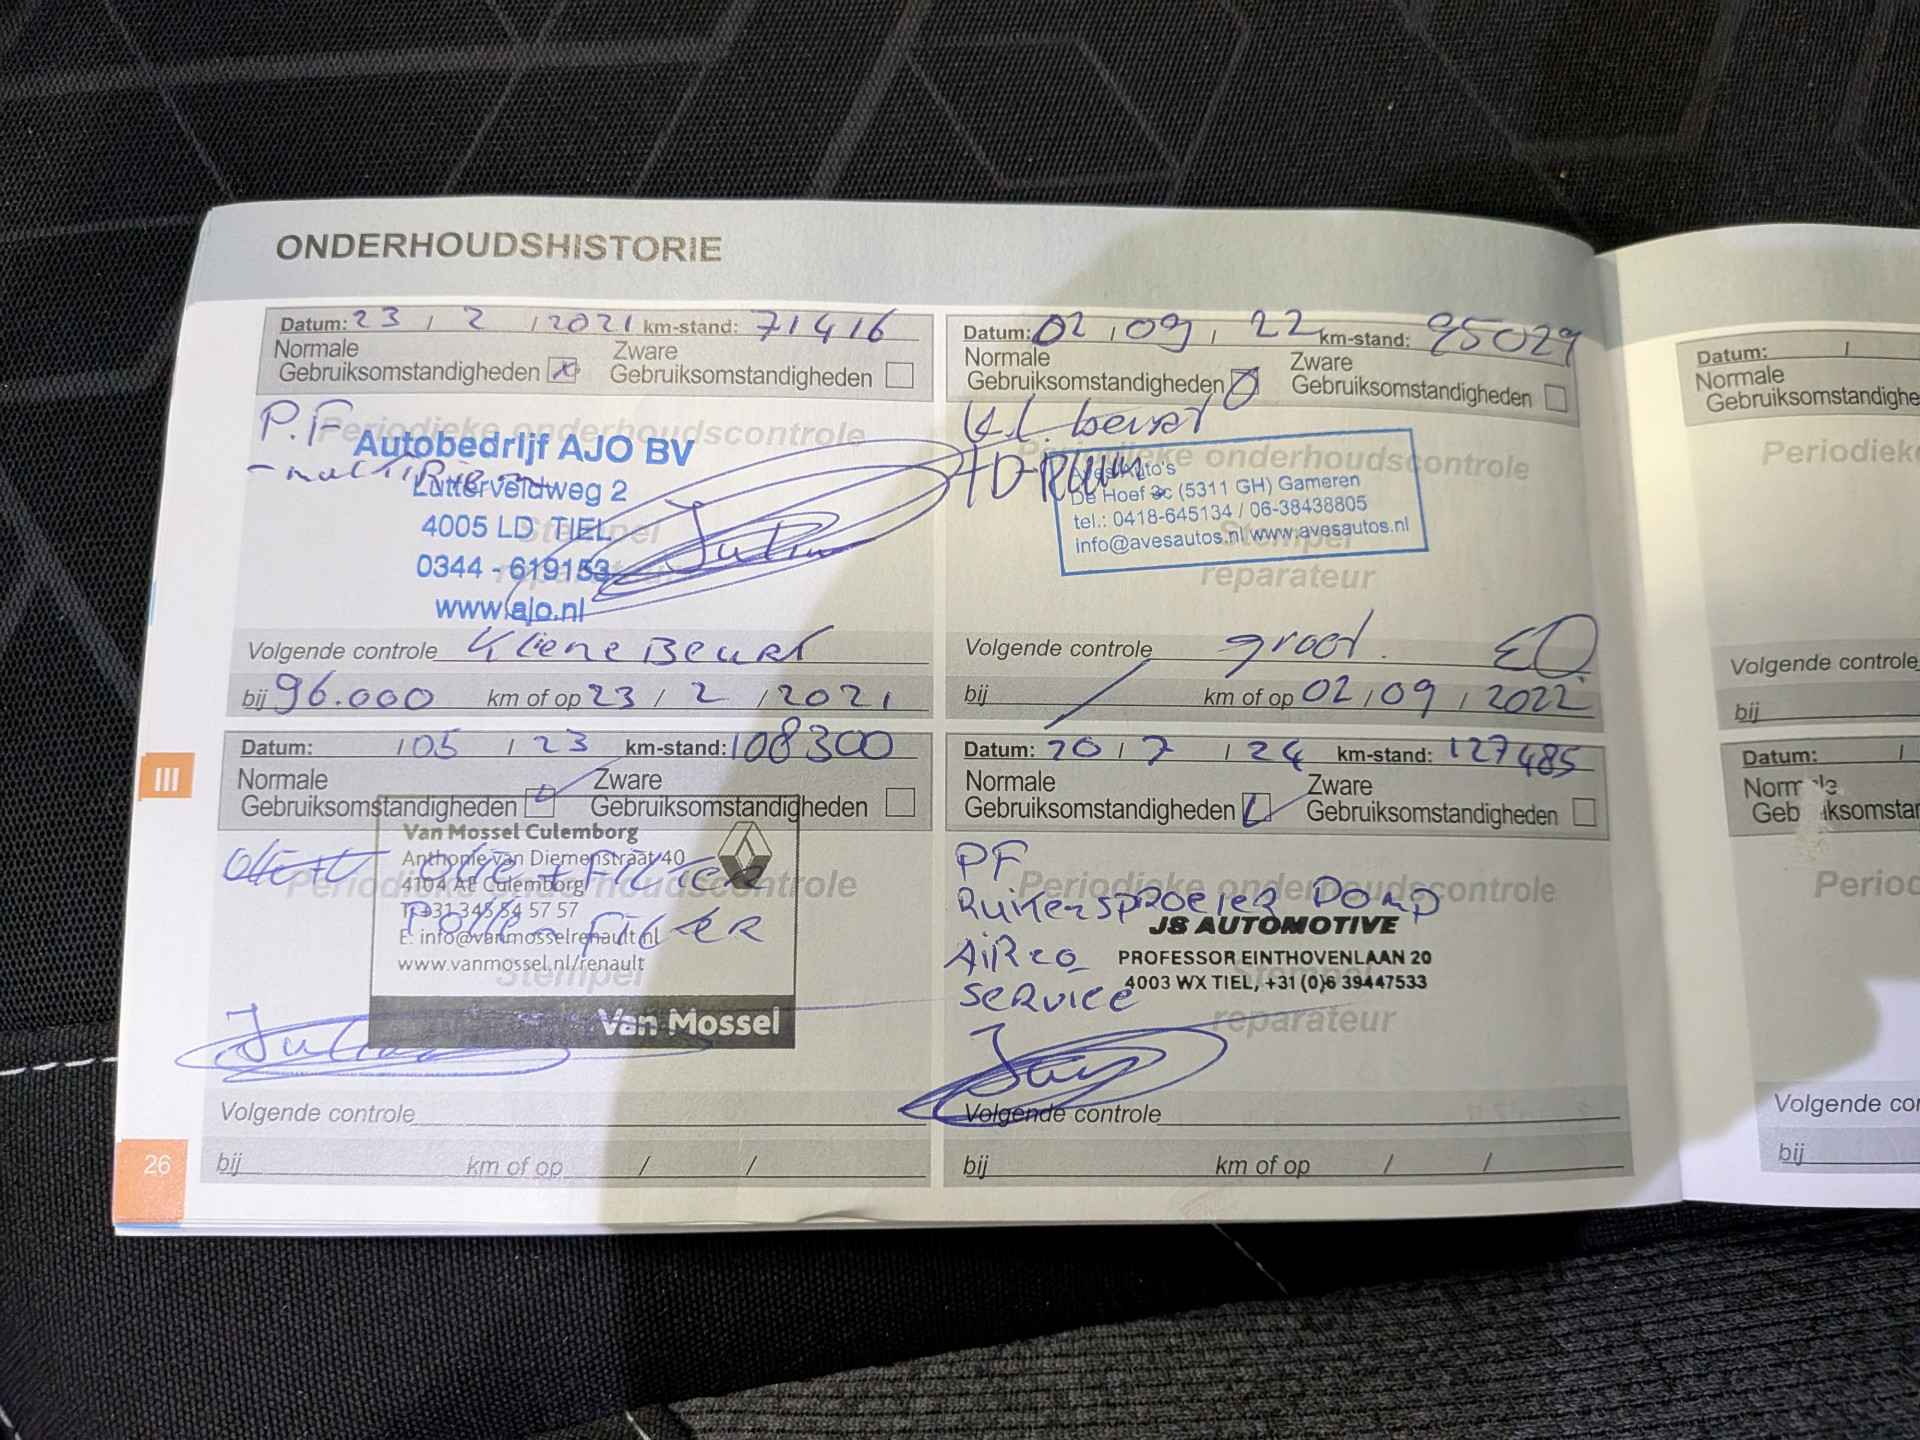 ONDERHOUDSHISTORIE
Datum: 23 / 2 / 2021 km-stand: 71416
Normale Gebruiksomstandigheden x Zware Gebruiksomstandigheden
P.F
Periodieke onderhoudscontrole
Autobedrijf AJO BV
Lutterveldweg 2
4005 LD TIEL
Stempel
0344 - 619153
reparateur
www.ajo.nl
Volgende controle Kliene Beurt
bij 96.000 km of op 23 / 2 / 2021
Datum: 02 / 09 / 22 km-stand: 95029
Normale Gebruiksomstandigheden Zware Gebruiksomstandigheden
kl. beurt
Periodieke onderhoudscontrole
Aves Auto's
De Hoef 3c (5311 GH) Gameren
tel.: 0418-645134 / 06-38438805
info@avesautos.nl www.avesautos.nl
Stempel
reparateur
Volgende controle groot.
bij km of op 02 / 09 / 2022
Datum: / 05 / 23 km-stand: 108300
Normale Gebruiksomstandigheden Zware Gebruiksomstandigheden
Van Mossel Culemborg
Anthonie van Diemenstraat 40
olie + Filter
Periodieke onderhoudscontrole
4104 AE Culemborg
T. +31 345 54 57 57
Pollen Filter
E. info@vanmosselrenault.nl
www.vanmossel.nl/renault
Stempel
Van Mossel
Volgende controle
bij km of op / /
Datum: 20 / 7 / 24 km-stand: 127485
Normale Gebruiksomstandigheden Zware Gebruiksomstandigheden
PF
Periodieke onderhoudscontrole
Ruitensproeier Pomp
JS AUTOMOTIVE
Airco
PROFESSOR EINTHOVENLAAN 20
Stempel
4003 WX TIEL, +31 (0)6 39447533
Service
reparateur
Volgende controle
bij km of op / /
III
26
Datum: /
Normale
Gebruiksomstandighe
Periodiek
Volgende controle
bij
Datum: /
Periodi
Volgende
bij